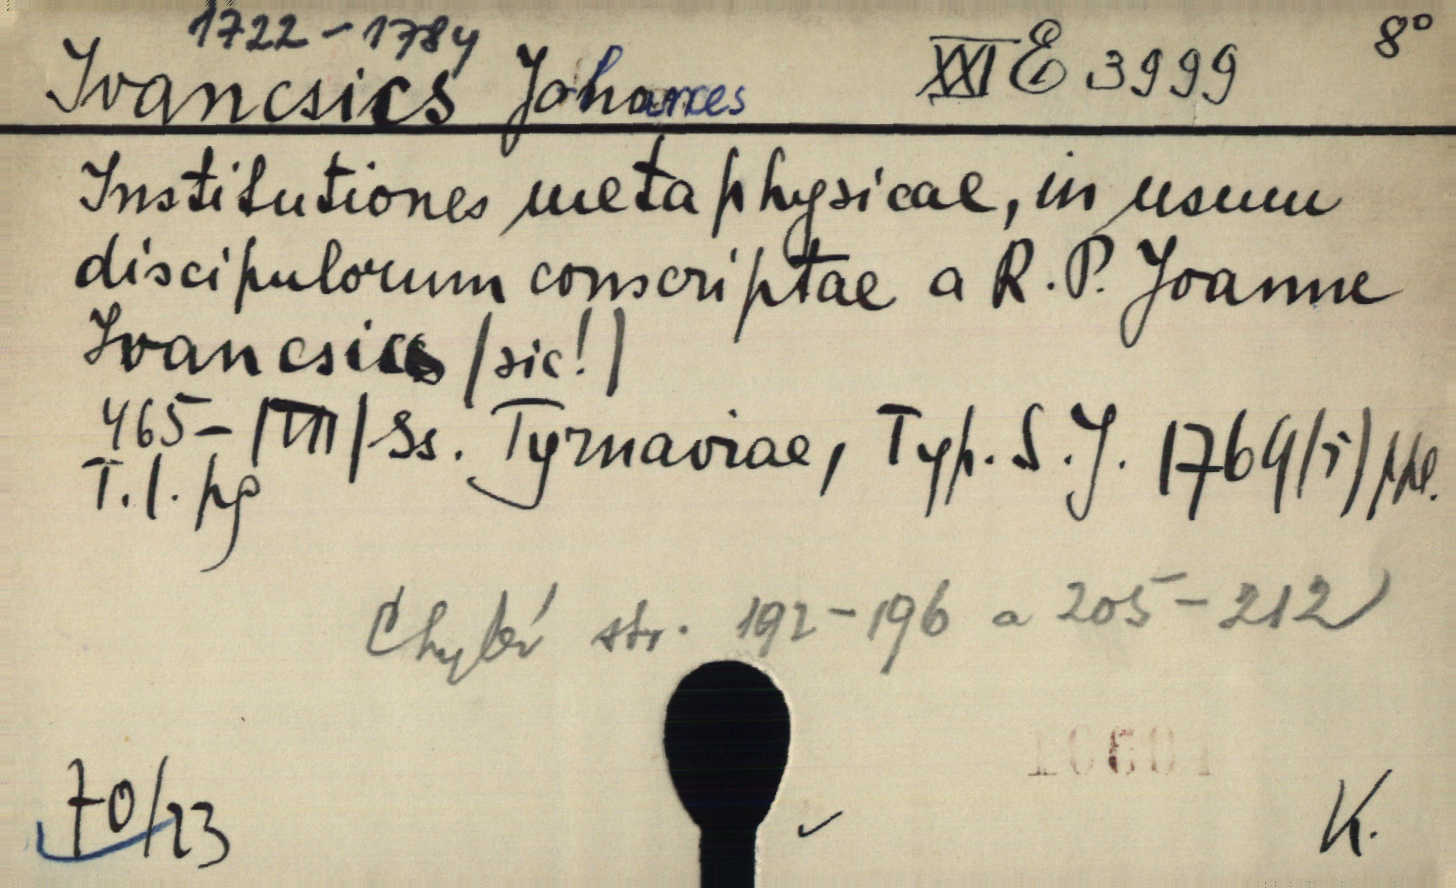 1722-1784
Ivancsics Johannes XXI E 3999 8°
Institutiones metaphysicae, in usum
discipulorum conscriptae a R. P. Joanne
Ivancsics (sic!)
465-/VII/Ss. Tyrnaviae, Typ. S. J. 1769
T. l. pg
Chybí str. 192-196 a 205-212
70/23 K.